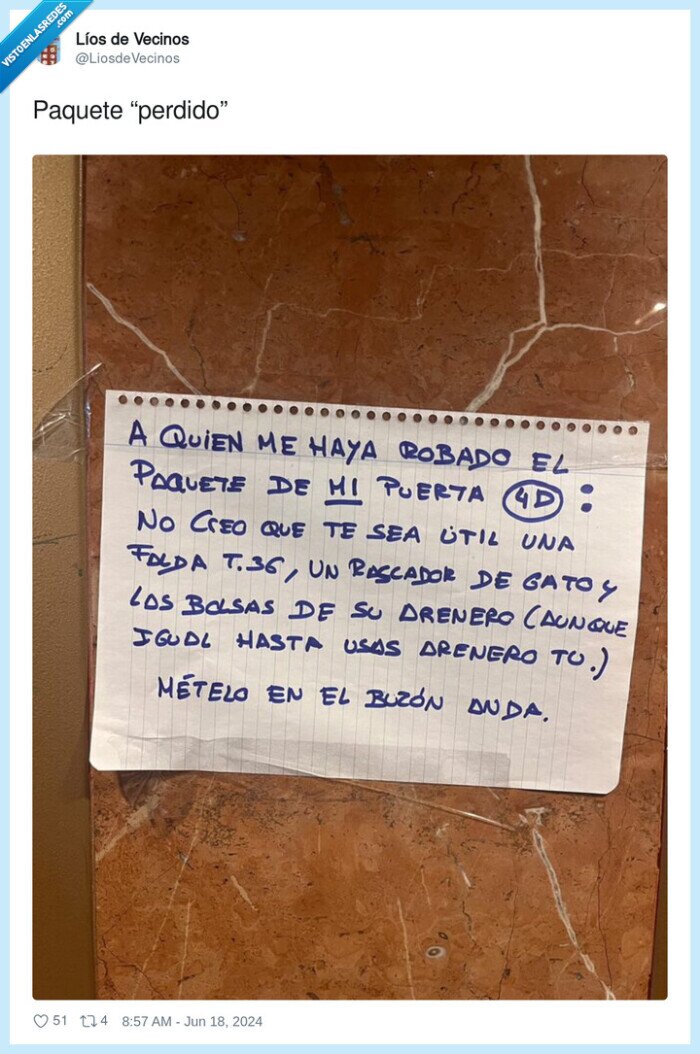 VISTOENLASREDES
.com
Líos de Vecinos
@LiosdeVecinos
Paquete “perdido”
A QUIEN ME HAYA ROBADO EL
PAQUETE DE MI PUERTA 4D :
NO CREO QUE TE SEA ÚTIL UNA
FALDA T.36, UN RASCADOR DE GATO Y
LAS BOLSAS DE SU ARENERO (AUNQUE
IGUAL HASTA USAS ARENERO TU.)
MÉTELO EN EL BUZÓN ANDA.
51 4 8:57 AM - Jun 18, 2024